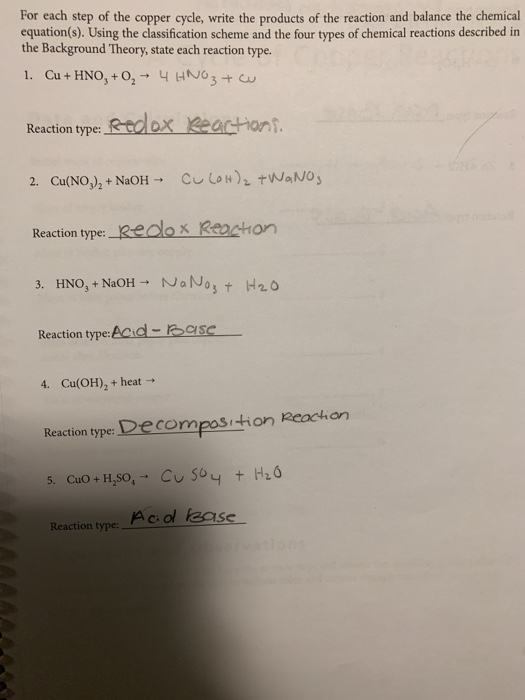 For each step of the copper cycle, write the products of the reaction and balance the chemical
equation(s). Using the classification scheme and the four types of chemical reactions described in
the Background Theory, state each reaction type.
1. Cu + HNO₃ + O₂ → 4 HNO3 + Cu
Reaction type: Redox Reactions.
2. Cu(NO₃)₂ + NaOH → Cu (OH)₂ + NaNO₃
Reaction type: Redox Reaction
3. HNO₃ + NaOH → NaNo₃ + H₂O
Reaction type: Acid-Base
4. Cu(OH)₂ + heat →
Reaction type: Decomposition Reaction
5. CuO + H₂SO₄ → Cu SO4 + H₂O
Reaction type: Acid Base